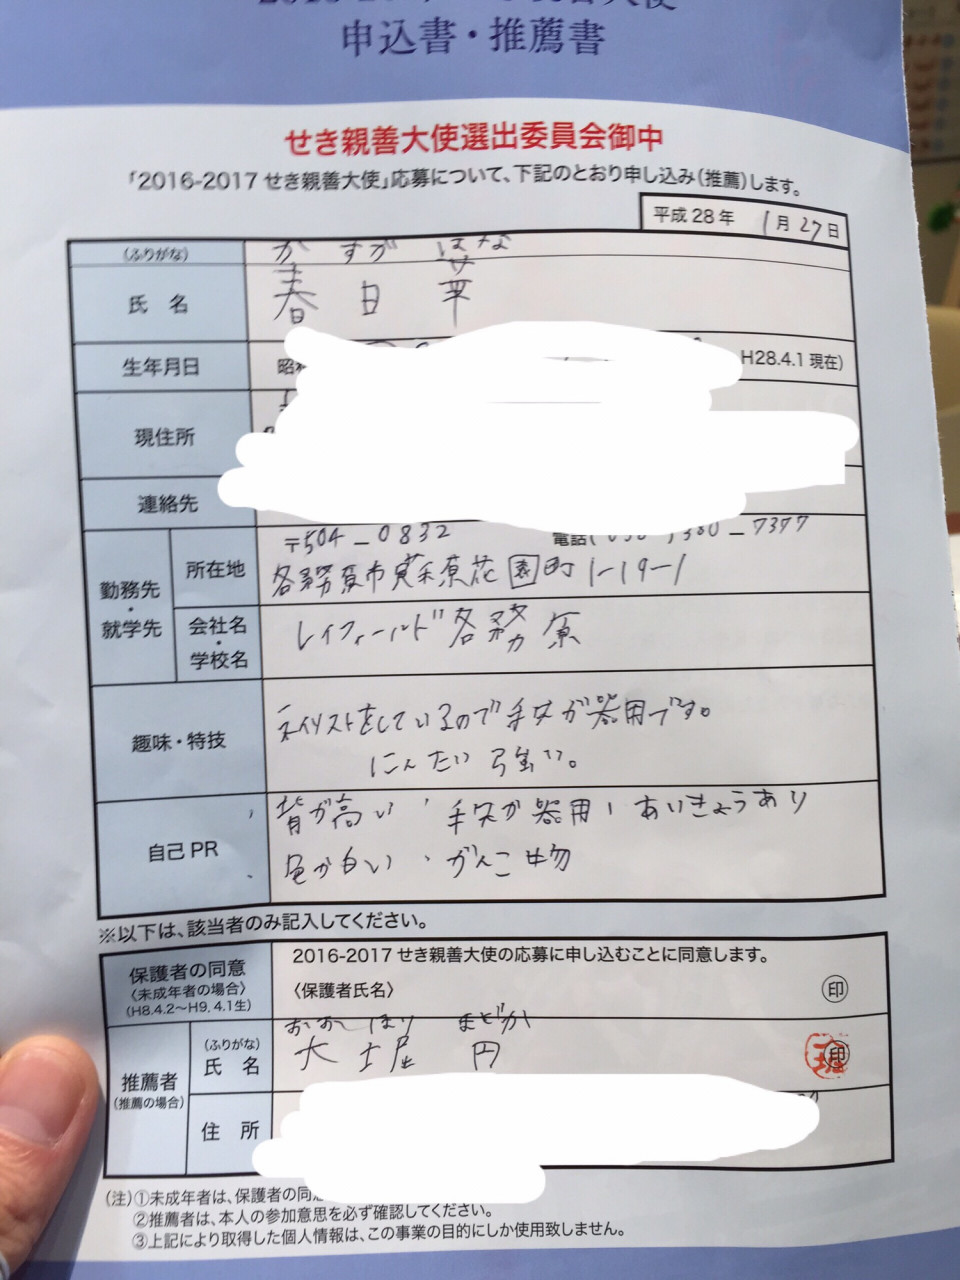 申込書・推薦書
せき親善大使選出委員会御中
「2016-2017 せき親善大使」応募について、下記のとおり申し込み(推薦)します。
平成28年 1月27日
(ふりがな) かすが はな
氏 名 春日 華
生年月日 H28.4.1 現在)
現住所
連絡先
〒504-0832 電話 380-7377
勤務先・就学先 所在地 各務原市蘇原花園町1-19-1
会社名・学校名 レイフィールド各務原
趣味・特技 ネイリストをしているので手先が器用です。
にんたい強い。
自己PR 背が高い、手先が器用、あいきょうあり
色が白い、がんこ物
※以下は、該当者のみ記入してください。
保護者の同意 2016-2017 せき親善大使の応募に申し込むことに同意します。
〈未成年者の場合〉 〈保護者氏名〉 印
(H8.4.2〜H9.4.1生)
(ふりがな) おおほり まどか
推薦者 氏 名 大堀 円 印
(推薦の場合)
住 所
(注)①未成年者は、保護者の同
②推薦者は、本人の参加意思を必ず確認してください。
③上記により取得した個人情報は、この事業の目的にしか使用致しません。